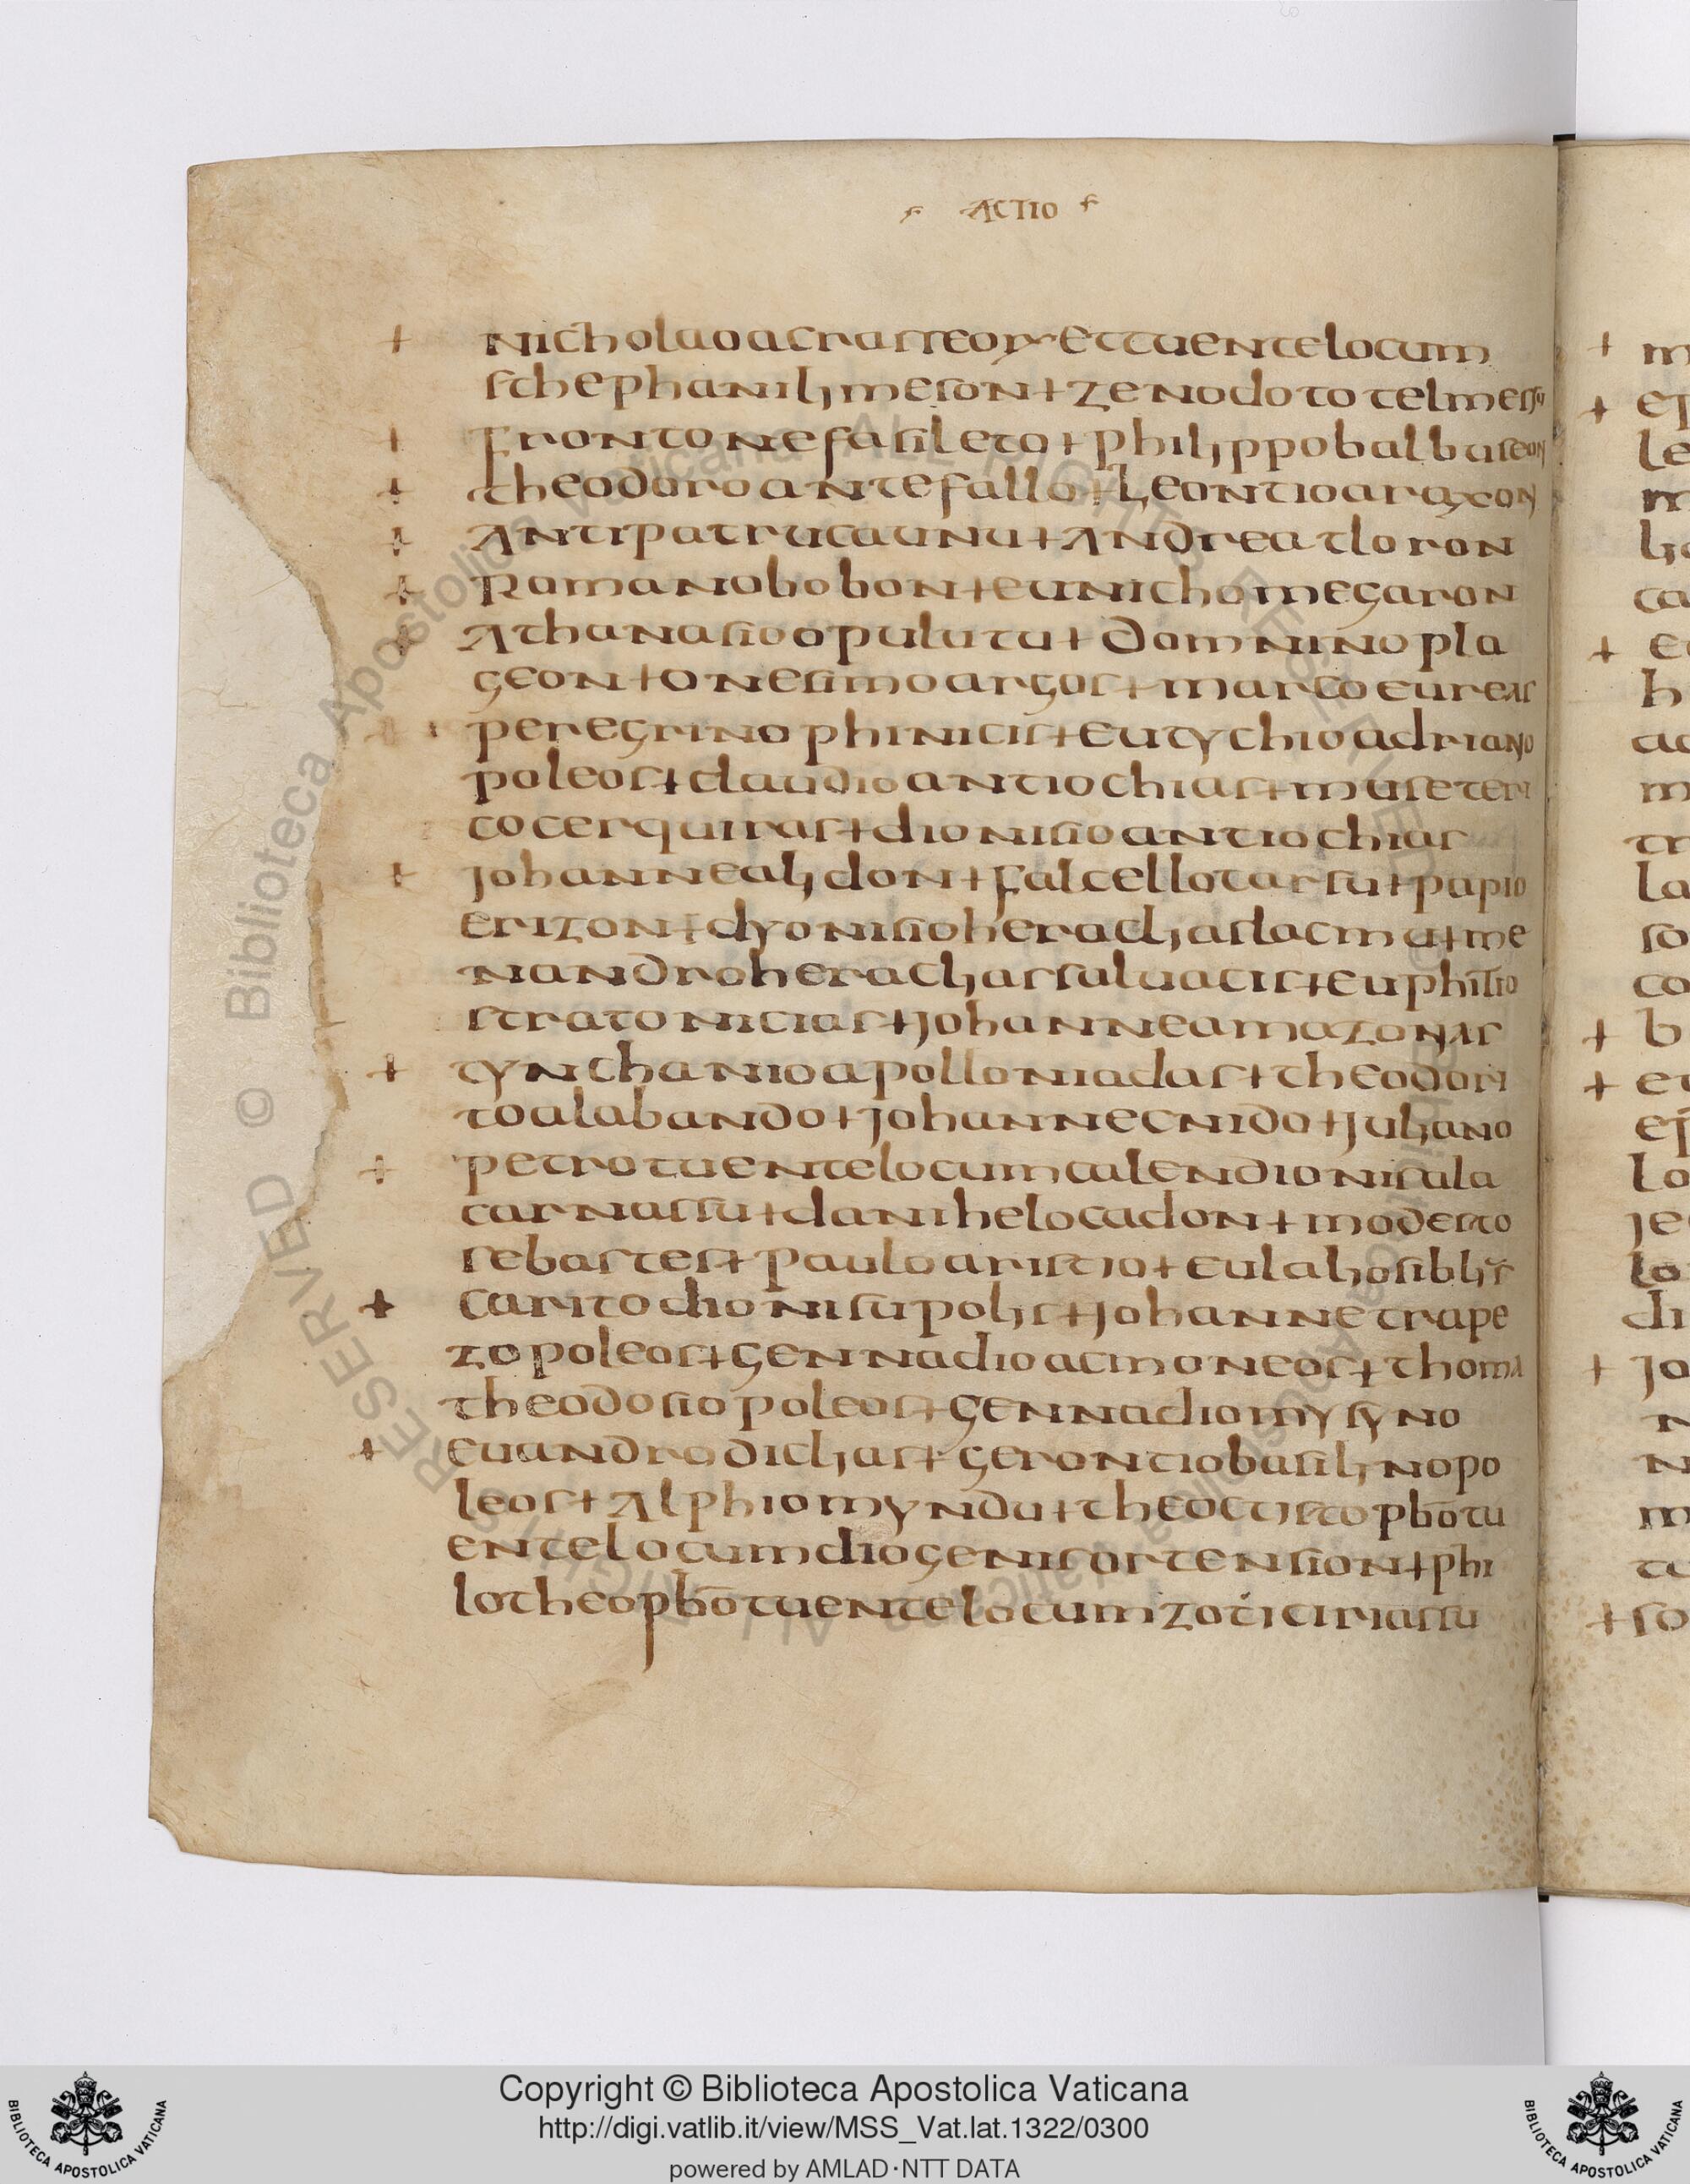 ACTIO
+ nicholao acrasseon + et tuente locum
stephani lymeron + zenodoto telmessu
+ frontone fasileto + philippo balbureon
+ theodoro antefallo + leontio araxon
+ antipatru caunu + andrea tloron
+ romano bobon + eunicho megaron
+ athanasio opulutu + domnino pla
geon + onesimo argos + marco eureas
peregrino phinicis + eutychio adriano
poleos + claudio antiochias +
co cerquiras + dionisio antiochias
+ johanne alindon + falcello tarsu + papio
erizon + dyonisio heraclias lacmu + me
nandro heraclias saluacis + euphisio
stratonicias + johanne amazonas
+ tynchanio apolloniadas + theodori
to alabando + johanne cnido + juliano
+ petro tuente locum calendionis ala
carnassu + danihelo cadon + modesto
sebastes + paulo aristio + eulalio siblis
+ carito dionisupolis + johanne trape
zopoleos + gennadio acmoneos + thoma
theodosiopoleos + gennadio mysyno
+ euandro diclias + gerontio basilinopo
leos + alphio myndu + theoctisto pbo tu
ente locum diogenis ortension + phi
lotheo pbo tuente locum zotici iriassu
Copyright © Biblioteca Apostolica Vaticana
http://digi.vatlib.it/view/MSS_Vat.lat.1322/0300
powered by AMLAD·NTT DATA